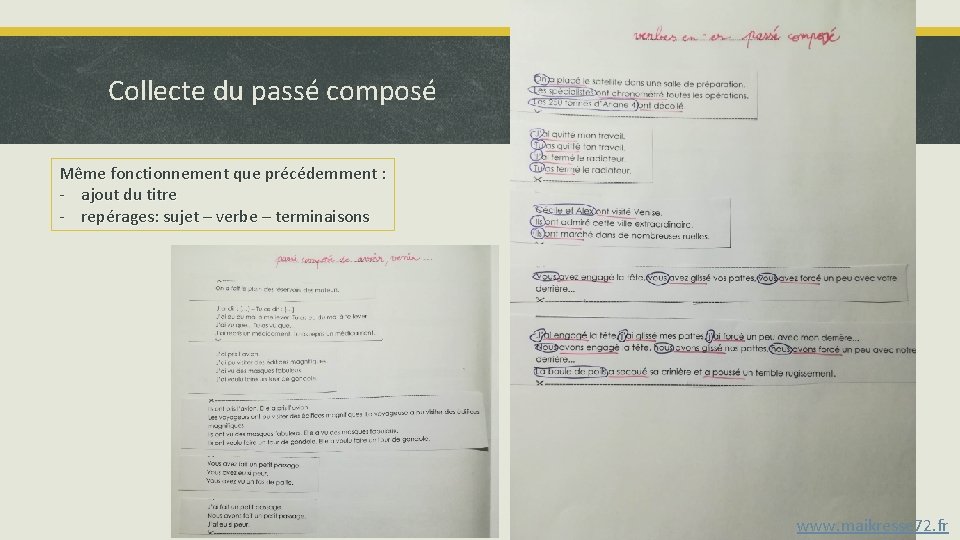 Collecte du passé composé
Même fonctionnement que précédemment :
- ajout du titre
- repérages: sujet – verbe – terminaisons
passé composé de avoir, venir ...
On a fait le plein des réservoirs des moteurs.
J'ai dit : [...] – Tu as dit : [...]
J'ai eu du mal à me lever. Tu as eu du mal à te lever.
J'ai vu que... Tu as vu que.
J'ai repris un médicament. Tu as repris un médicament.
J'ai pris l'avion.
J'ai pu visiter des édifices magnifiques.
J'ai vu des masques fabuleux.
J'ai voulu faire un tour de gondole.
Ils ont pris l'avion. Elle a pris l'avion.
Les voyageurs ont pu visiter des édifices magnifiques. La voyageuse a pu visiter des édifices
magnifiques.
Ils ont vu des masques fabuleux. Elle a vu des masques fabuleux.
Ils ont voulu faire un tour de gondole. Elle a voulu faire un tour de gondole.
Vous avez fait un petit passage.
Vous avez eu peur.
Vous avez vu un tas de paille.
J'ai fait un petit passage.
Nous avons fait un petit passage.
J'ai eu peur.
verbes en -er passé composé
On a placé le satellite dans une salle de préparation.
Les spécialistes ont chronométré toutes les opérations.
Les 250 tonnes d'Ariane 4 ont décollé.
J'ai quitté mon travail.
Tu as quitté ton travail.
J'ai fermé le radiateur.
Tu as fermé le radiateur.
Cécile et Alex ont visité Venise.
Ils ont admiré cette ville extraordinaire.
Ils ont marché dans de nombreuses ruelles.
Vous avez engagé la tête, vous avez glissé vos pattes, vous avez forcé un peu avec votre
derrière...
J'ai engagé la tête, j'ai glissé mes pattes, j'ai forcé un peu avec mon derrière...
Nous avons engagé la tête, nous avons glissé nos pattes, nous avons forcé un peu avec notre
derrière...
La boule de poils a secoué sa crinière et a poussé un terrible rugissement.
www.maikresse72.fr